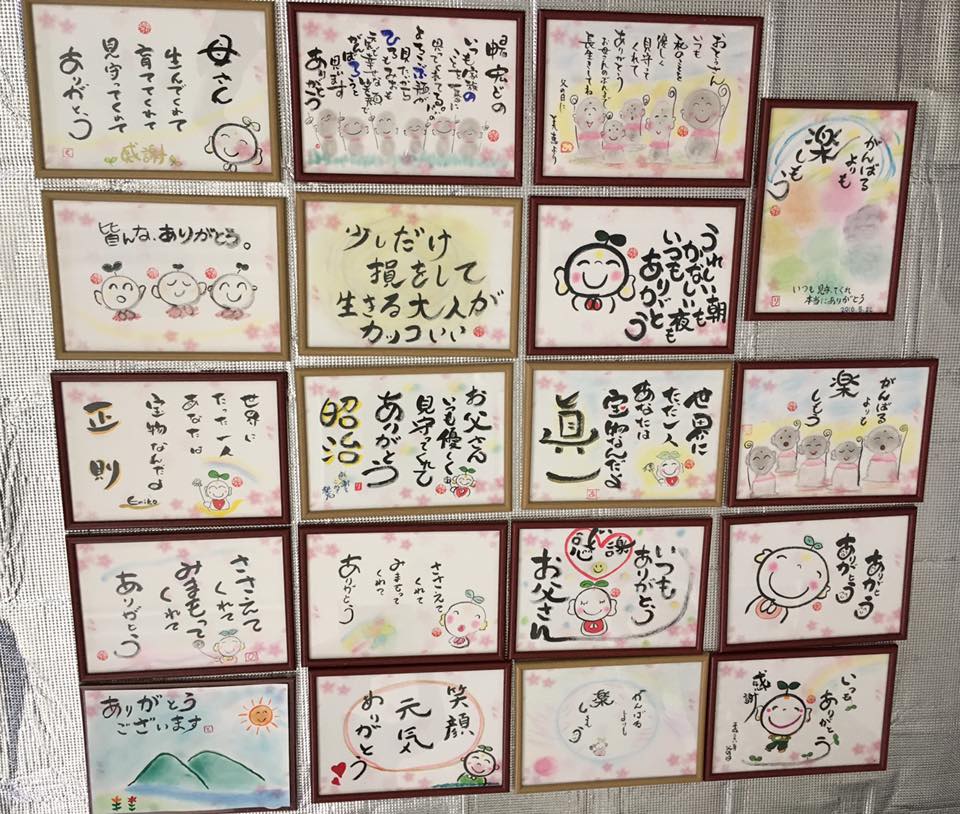 母さん
生んでくれて
育ててくれて
見守ってくれて
ありがとう
いつも家族の
ありがとう
おとうさん
いつも
私のことを
優しく
見守って
くれて
ありがとう
お母さんのぶんまで
長生きしてね
父の日に
がんばる
よりも
楽
しもう
いつも見守ってくれ
本当にありがとう
皆んな、ありがとう。
少しだけ
損をして
生きる大人が
カッコいい
うれしい朝
かなしい夜も
いつも
ありがとう
世界に
たった一人
あなたは
宝物なんだよ
正則
Eriko
お父さん
いつも優しく
見守ってくれて
ありがとう
昭治
世界に
ただ一人
あなたは
宝物なんだよ
眞一
がんばる
よりも
楽
しもう
ささえて
くれて
みまもって。
くれて
ありがとう
ささえて
くれて
みまもって
くれて
ありがとう
いつも
ありがとう
感謝
お父さん
ありがとう
ありがとう
ありがとう
ございます
笑顔
元気
ありがとう
がんばる
よりも
楽
しもう
いつも
ありがとう
感謝